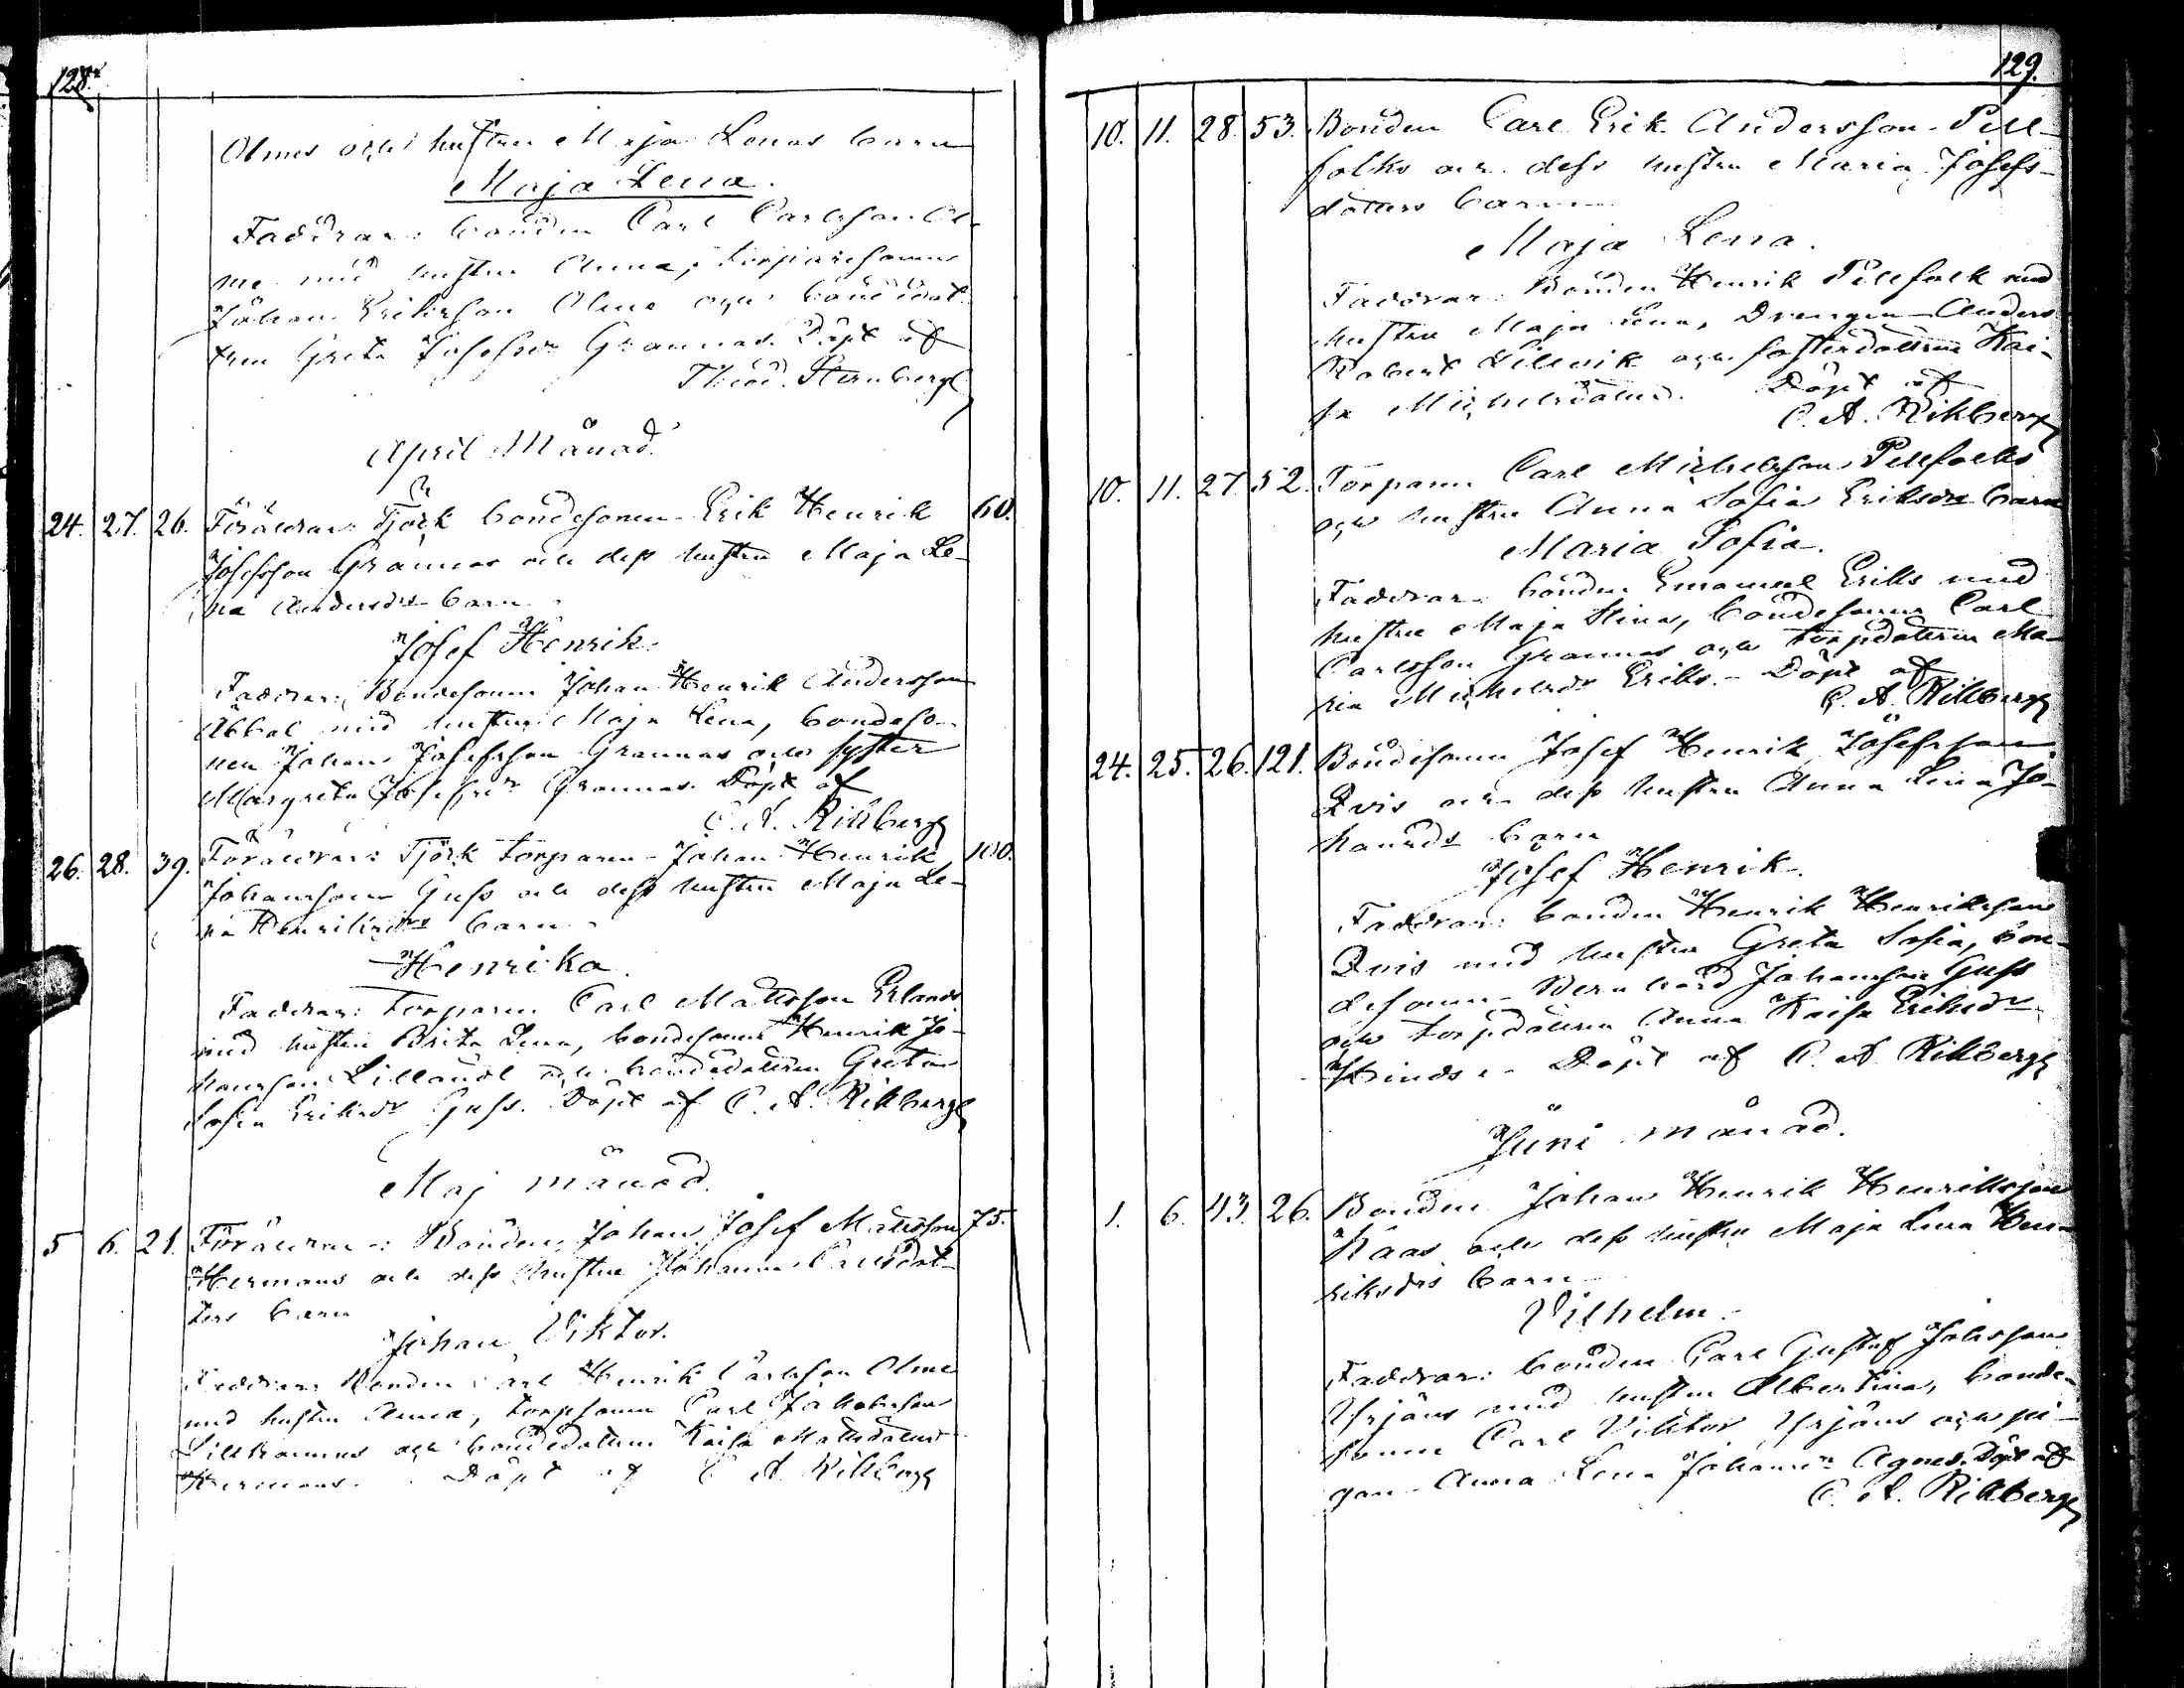 128.
Olmes och hustru Maja Lenas barn
Maja Lena.
Faddrar: bonden Carl Carlsson Ol-
me med hustru Anna, torparesonen
Johan Eriksson Olme och bondedot-
tren Greta Josefsdr Grannas. Döpt af
Theod. Sternberg
April Månad.
24. 27. 26. Föräldrar: Tjöck bondesonen Erik Henrik 60.
Josefsson Grannas och dess hustru Maja Le-
na Andersdrs barn
Josef Henrik.
Faddrar: Bondesonen Johan Henrik Andersson
Åbbal med hustru Maja Lena, bondeso-
nen Johan Josefsson Grannas och syster
Margreta Josefsdr Grannas. Döpt af
C. A. Rikberg
26. 28. 39. Föräldrar: Tjöck torparen Johan Henrik 100.
Johansson Guss och dess hustru Maja Le-
na Henriksdrs barn
Henrika.
Faddrar: torparen Carl Mattsson Erlands
med hustru Brita Lena, bondesonen Henrik Jo-
hansson Lillåudd och bondedottren Greta
Sofia Eriksdr Guss. Döpt af C. A. Rikberg
Maj månad.
5 6. 21. Föräldrar: Bonden Johan Josef Mattsson 75.
Hermans och dess hustru Johanna Carlsdot-
ters barn
Johan Viktor.
Faddrar: Bonden Carl Henrik Carlsson Olme
med hustru Anna, torpsonen Carl Jakobsson
och bondedottren Kaisa Mattsdotter
Hermans. Döpt af C A. Rikberg
129.
10. 11. 28. 53. Bonden Carl Erik Andersson Pell-
folks och dess hustru Maria Josefs-
dotters barn
Maja Lena.
Faddrar: Bonden Henrik Pellfolk med
hustru Maja Lena, Drengen Anders
Robert Lillvik och fosterdottren Kai-
sa Michelsdotter. Döpt af
C. A. Rikberg
10. 11. 27. 52. Torparen Carl Michelsson Pellfolks
och hustru Anna Sofia Eriksdrs barn
Maria Sofia.
Faddrar: bonden Emanuel Erills med
hustru Maja Stina, bondesonen Carl
Carlsson Grannas och torpdottren Ma-
ria Michelsdr Erills. Döpt af
C. A. Rikberg
24. 25. 26. 121. Bondesonen Josef Henrik Josefsson
Qvis och dess hustru Anna Lena Jo-
hansds barn
Josef Henrik.
Faddrar: bonden Henrik Henriksson
Qvis med hustru Greta Sofia, bon-
desonen Bernhard Johansson Guss
och torpdottren Anna Kaisa Eriksdr
Hinds. Döpt af C. A. Rikberg
Juni månad.
1. 6. 43. 26. Bonden Johan Henrik Henriksson
Kaas och dess hustru Maja Lena Hen-
riksdrs barn
Vilhelm.
Faddrar: bonden Carl Gustaf Jobsson
Yrjäns med hustru Albertina, bonde-
sonen Carl Viktor Yrjäns och pi-
gan Anna Lena Johansdr Agnes. Döpt af
C. A. Rikberg